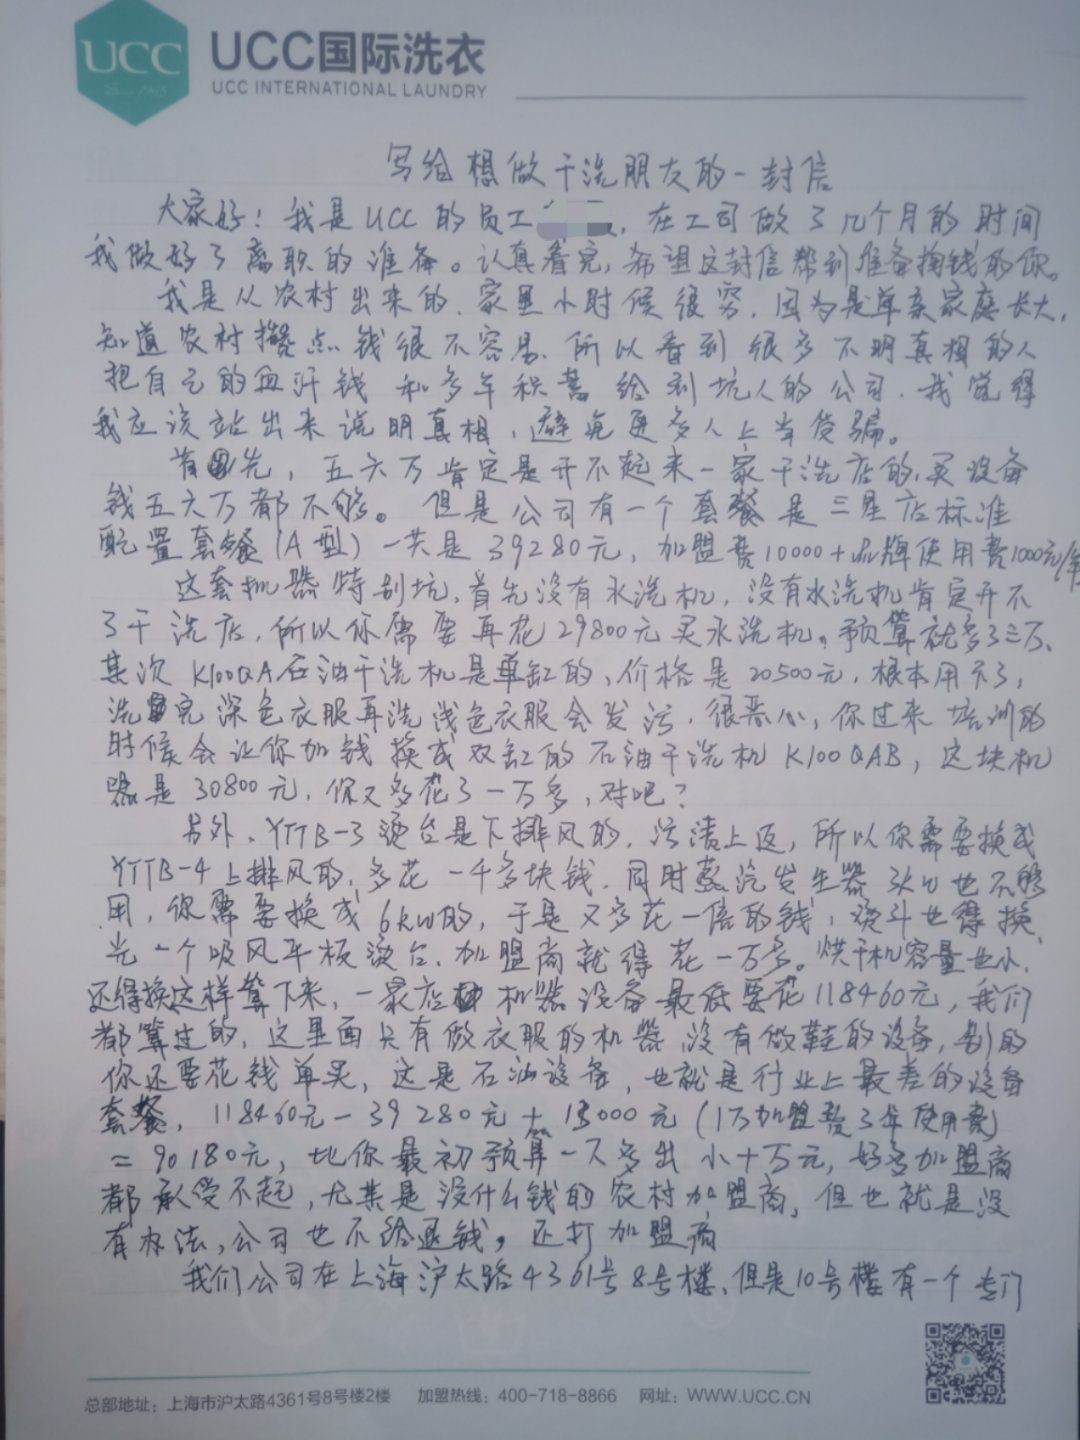 UCC
UCC国际洗衣
UCC INTERNATIONAL LAUNDRY
写给想做干洗朋友的一封信
大家好！我是UCC的员工 ，在工司做了几个月的时间
我做好了离职的准备。认真看完，希望这封信帮到准备掏钱的你。
我是从农村出来的，家里小时候很穷，因为是单亲家庭长大，
知道农村攒点钱很不容易，所以看到很多不明真相的人
把自己的血汗钱和多年积蓄给到坑人的公司，我觉得
我应该站出来说明真相，避免更多人上当受骗。
首先，五六万肯定是开不起来一家干洗店的，买设备
钱五六万都不够。但是公司有一个套餐是三星店标准
配置套餐（A型）一共是39280元，加盟费10000+品牌使用费1000元/年
这套机器特别坑，首先没有水洗机，没有水洗机肯定开不
了干洗店，所以你需要再花29800元买水洗机。预算就多了三万、
其次K100QA石油干洗机是单缸的，价格是20500元，根本用不了，
洗完深色衣服再洗浅色衣服会发污，很恶心，你过来培训的
时候会让你加钱换成双缸的石油干洗机K100QAB，这块机
器是30800元，你又多花了一万多，对吧？
另外、YTTB-3烫台是下排风的，污渍上返，所以你需要换成
YTTB-4上排风的，多花一千多块钱，同时蒸汽发生器3KW也不够
用，你需要换成6KW的，于是又多花一倍的钱，熨斗也得换、
光一个吸风平板烫台，加盟商就得花一万多。烘干机容量也小、
还得换这样算下来，一家店 机器设备最低要花118460元，我们
都算过的，这里面只有做衣服的机器，没有做鞋的设备，别的
你还要花钱单买，这是石油设备，也就是行业上最差的设备
套餐，118460元-39280元+13000元（1万加盟费3年使用费）
=90180元，比你最初预算一下多出小十万元，好多加盟商
都承受不起，尤其是没什么钱的农村加盟商，但也就是没
有办法，公司也不给退钱，还打加盟商
我们公司在上海沪太路4361号8号楼，但是10号楼有一个专门
总部地址：上海市沪太路4361号8号楼2楼 加盟热线：400-718-8866 网址：WWW.UCC.CN